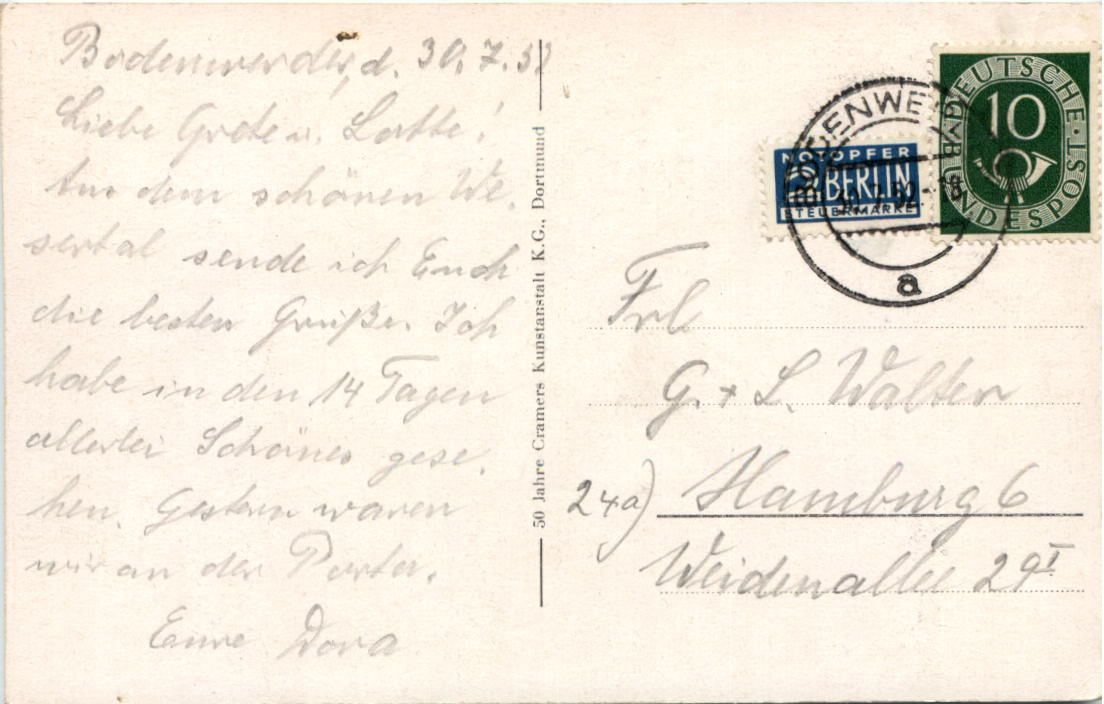 Bodenwerder, d. 30.7.52
Liebe Grete u. Lotte!
Aus dem schönen We-
sertal sende ich Euch
die besten Grüße. Ich
habe in den 14 Tagen
allerlei Schönes gese-
hen. Gestern waren
wir an der Porta.
Eure Dora
50 Jahre Cramers Kunstanstalt K.G., Dortmund
NOTOPFER
2 BERLIN
STEUERMARKE
BODENWE
30.7.52.-18
a
DEUTSCHE
BUNDESPOST
10
Frl
G. + L. Walter
24a) Hamburg 6
Weidenallee 29 I